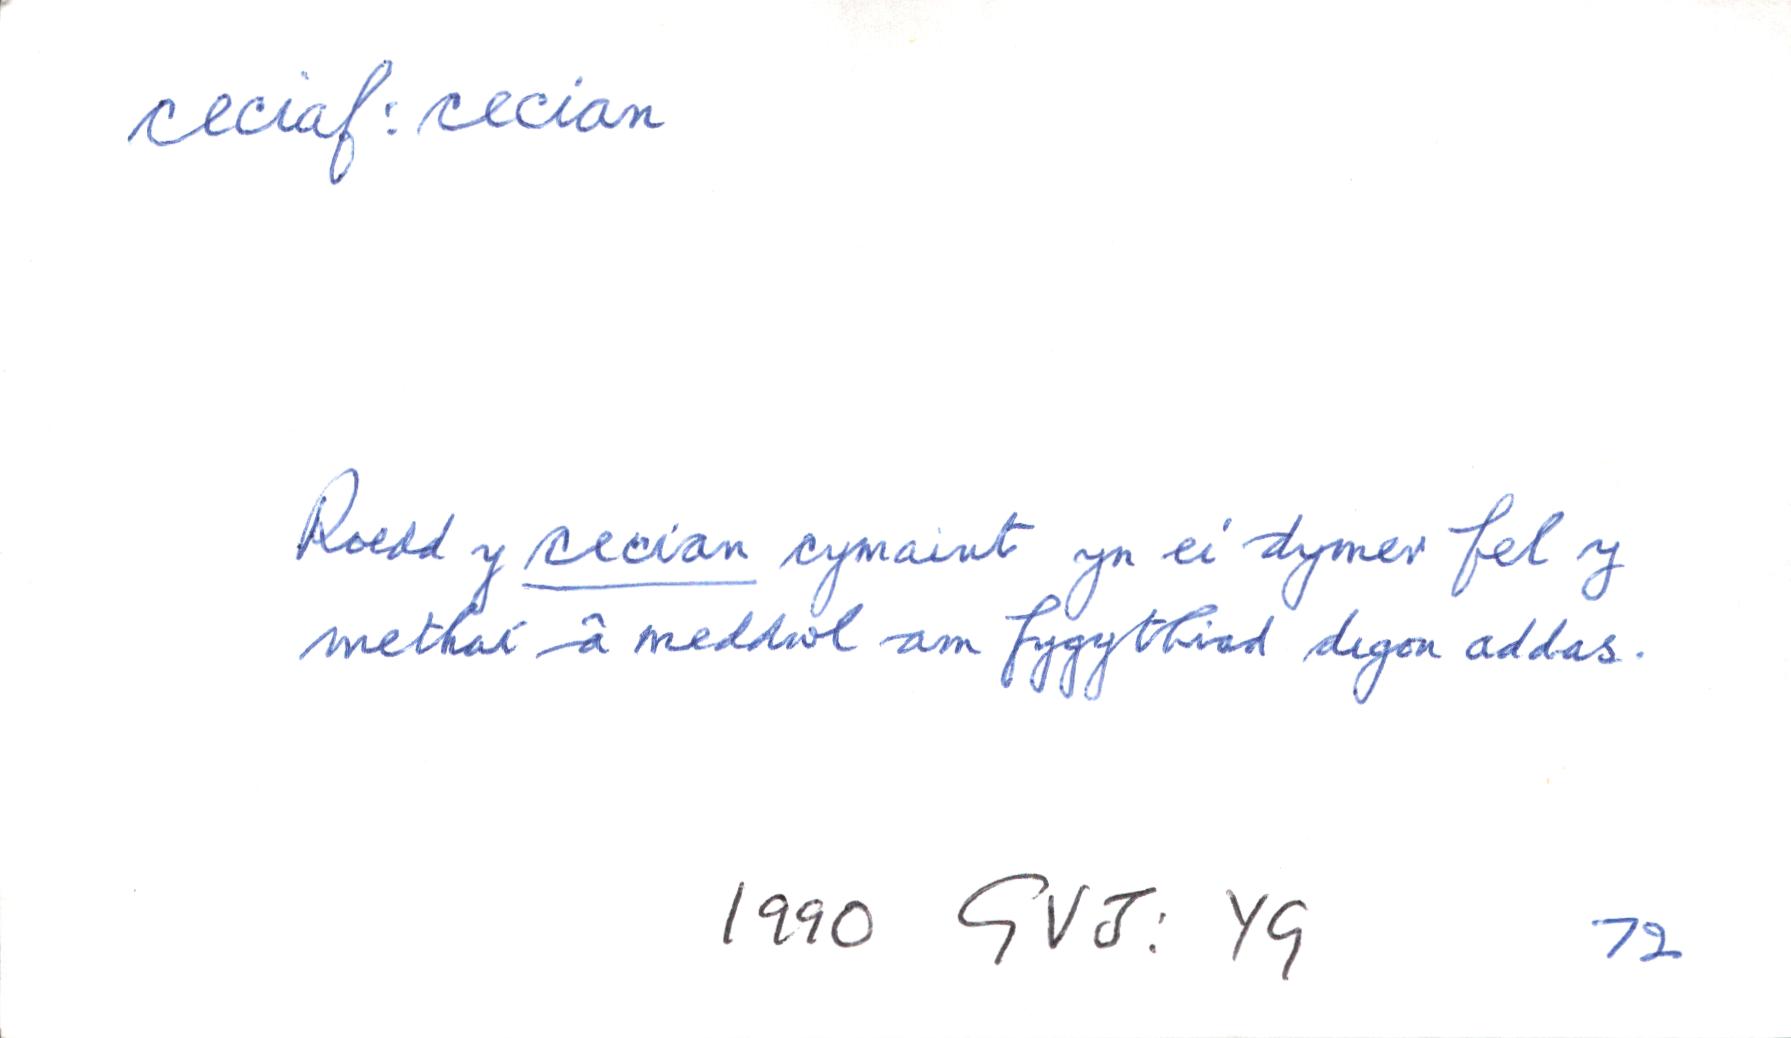 ceciaf: cecian
Roedd y cecian cymaint yn ei dymer fel y
methai â meddwl am fygythiad digon addas.
1990 GVJ: YG 72